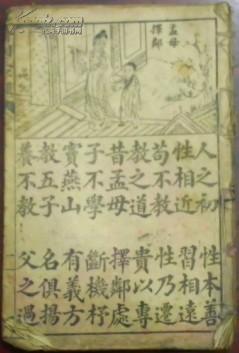 孟母
擇鄰
人之初 性本善
性相近 習相遠
苟不教 性乃遷
教之道 貴以專
昔孟母 擇鄰處
子不學 斷機杼
竇燕山 有義方
教五子 名俱揚
養不教 父之過